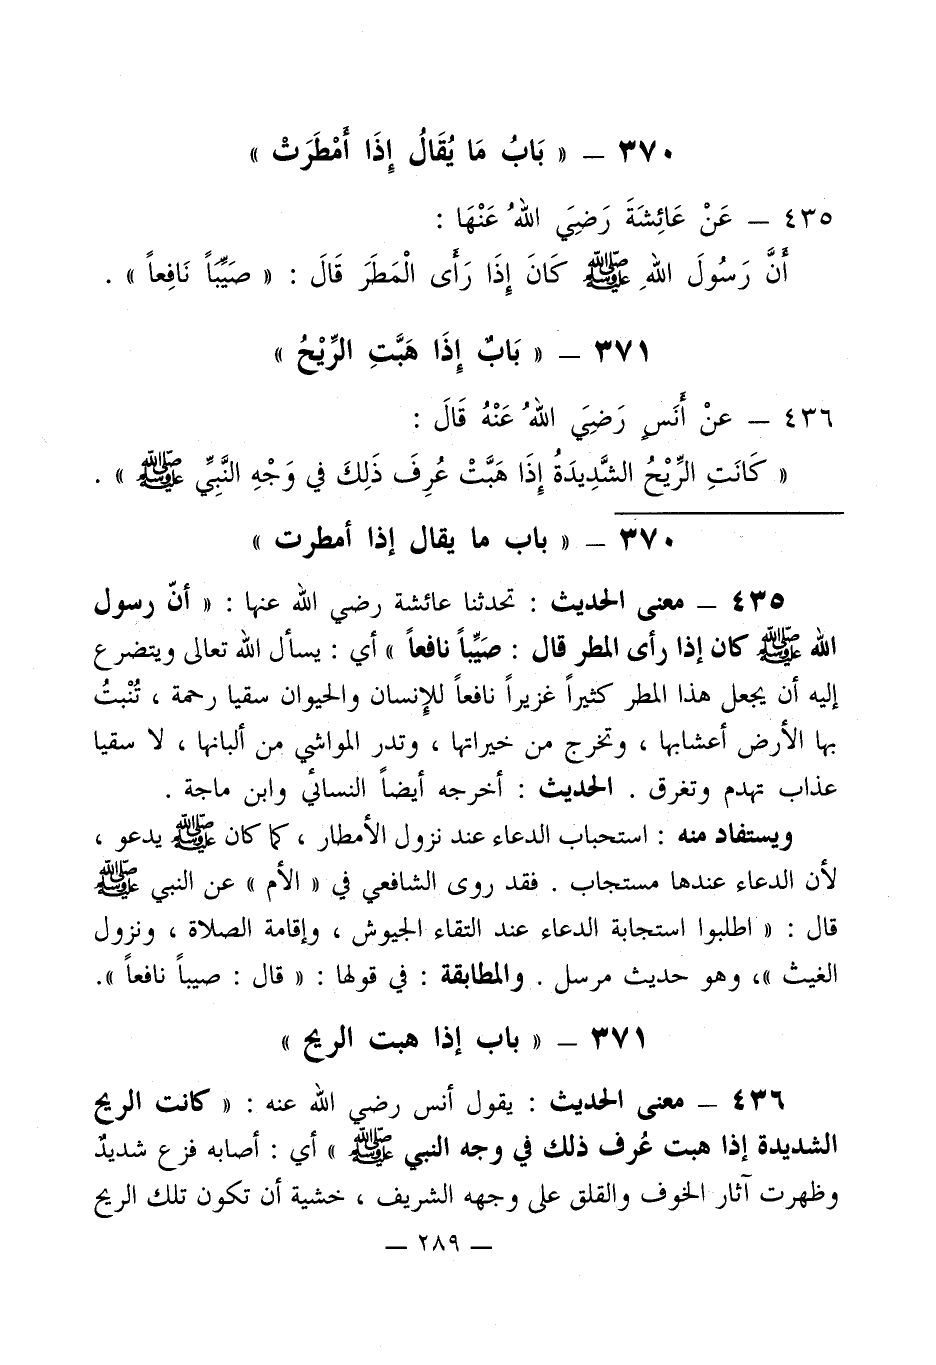 ٣٧٠ – « بَابُ مَا يُقَالُ إِذَا أَمْطَرَتْ »
٤٣٥ – عَنْ عَائِشَةَ رَضِيَ اللهُ عَنْهَا :
أَنَّ رَسُولَ اللهِ ﷺ كَانَ إِذَا رَأَى الْمَطَرَ قَالَ : « صَيِّبَاً نَافِعاً » .
٣٧١ – « بَابٌ إِذَا هَبَّتِ الرِّيْحُ »
٤٣٦ – عنْ أَنَسٍ رَضِيَ اللهُ عَنْهُ قَالَ :
« كَانَتِ الرِّيْحُ الشَّدِيدَةُ إِذَا هَبَّتْ عُرِفَ ذَلِكَ في وَجْهِ النَّبِّي ﷺ » .
٣٧٠ – « باب ما يقال إذا أمطرت »
٤٣٥ – معنى الحديث : تحدثنا عائشة رضي الله عنها : « أنّ رسول
الله ﷺ كان إذا رأى المطر قال : صَيِّباً نافعاً » أي : يسأل الله تعالى ويتضرع
إليه أن يجعل هذا المطر كثيراً غزيراً نافعاً للإنسان والحيوان سقيا رحمة ، تُنْبتُ
بها الأرض أعشابها ، وتخرج من خيراتها ، وتدر المواشي من ألبانها ، لا سقيا
عذاب تهدم وتغرق . الحديث : أخرجه أيضاً النسائي وابن ماجة .
ويستفاد منه : استحباب الدعاء عند نزول الأمطار ، كما كان ﷺ يدعو ،
لأن الدعاء عندها مستجاب . فقد روى الشافعي في « الأم » عن النبي ﷺ
قال : « اطلبوا استجابة الدعاء عند التقاء الجيوش ، وإقامة الصلاة ، ونزول
الغيث »، وهو حديث مرسل . والمطابقة : في قولها : « قال : صيباً نافعاً ».
٣٧١ – « باب إذا هبت الريح »
٤٣٦ – معنى الحديث : يقول أنس رضي الله عنه : « كانت الريح
الشديدة إذا هبت عُرف ذلك في وجه النبي ﷺ » أي : أصابه فزع شديدٌ
وظهرت آثار الخوف والقلق على وجهه الشريف ، خشية أن تكون تلك الريح
– ٢٨٩ –